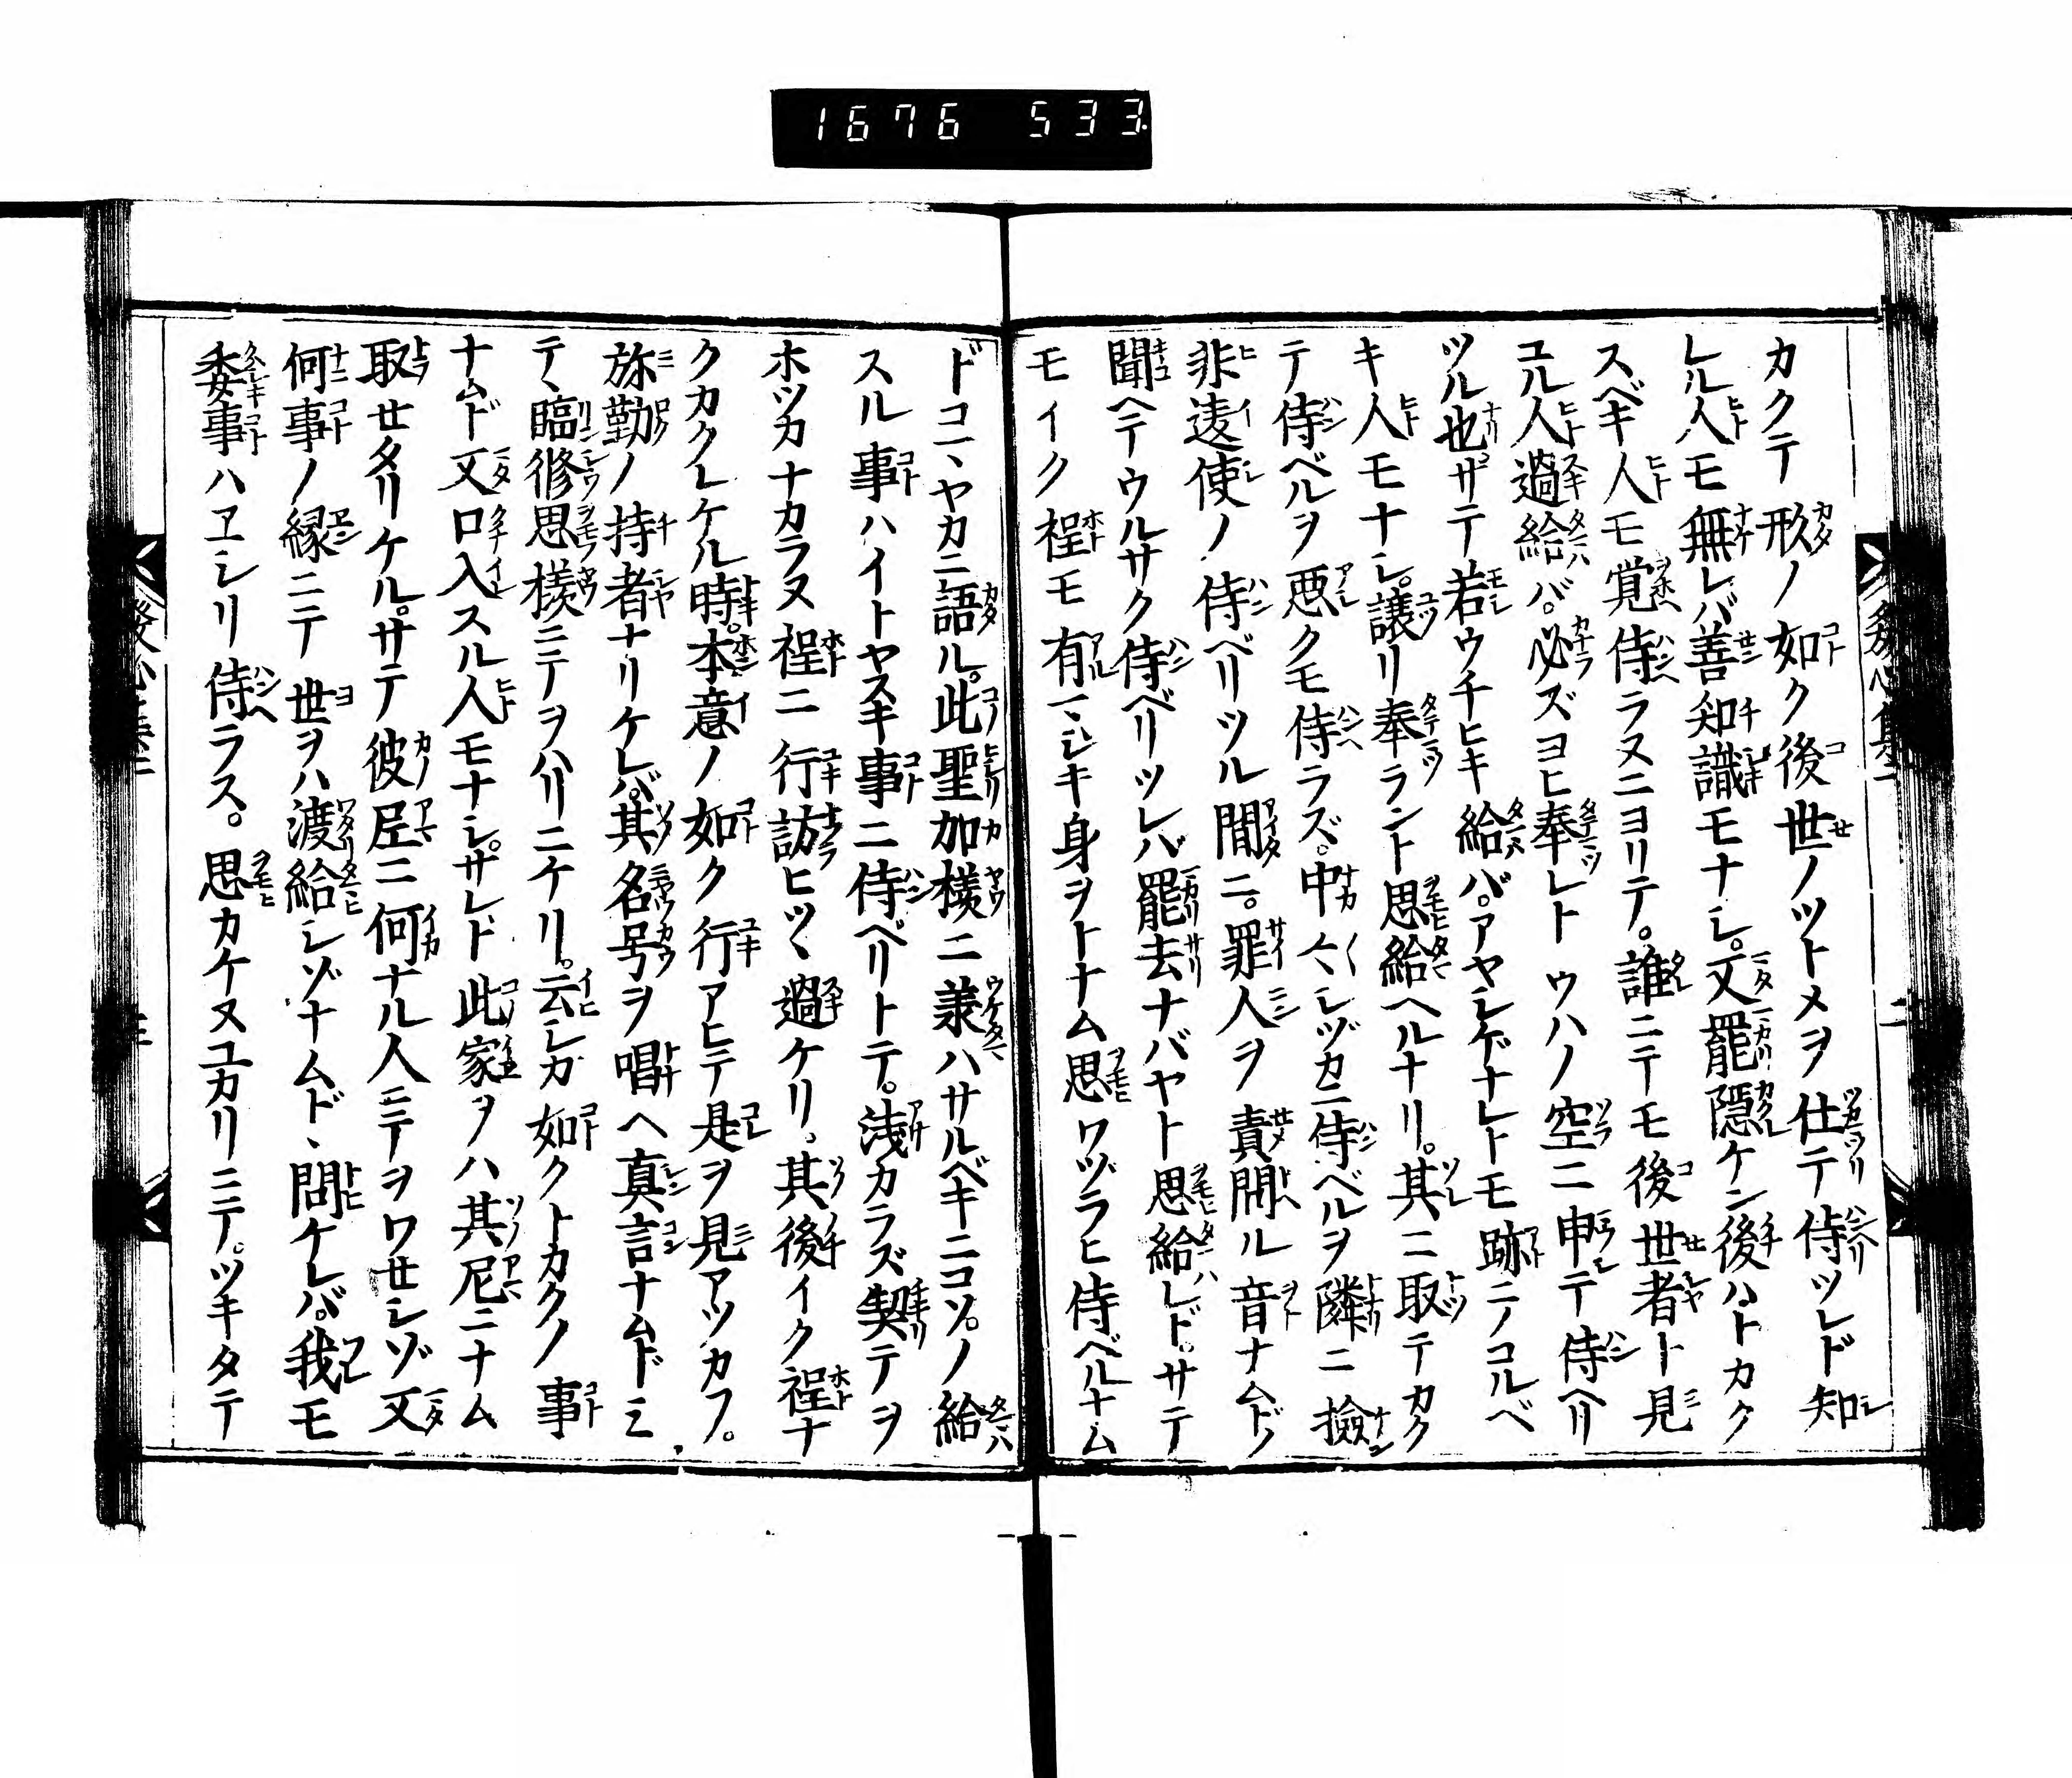 1676 533
カクテ形ノ如ク後世ノツトメヲ仕テ侍ツレド知
レル人モ無レバ善知識モナシ。又罷隠ケン後ハトカク
スベキ人モ覚侍ラヌニヨリテ。誰ニテモ後世者ト見
ユル人過給バ。必ズヨヒ奉レトウハノ空ニ申テ侍ヘリ
ツル也サテ若ウチヒキ給バ。アヤシゲナレトモ跡ニノコルベ
キ人モナシ。譲リ奉ラント思給ヘルナリ。其ニ取テカク
テ侍ベルヲ悪クモ侍ラズ。中〱シヅカニ侍ベルヲ隣ニ撿
非違使ノ侍ベリツル間ニ。罪人ヲ責問ル音ナムドノ
聞ヘテウルサク侍ベリツレバ罷去ナバヤト思給レド。サテ
モイク程モ有マシキ身ヲトナム思ワヅラヒ侍ベルナム
ドコマヤカニ語ル。此聖加様ニ兼ハサルベキニコソ。ノ給
スル事ハイトヤスキ事ニ侍ベリトテ。浅カラズ契テヲ
ホツカナカラヌ程ニ行訪ヒツヽ過ケリ。其後イク程ナ
クカクレケル時。本意ノ如ク行アヒテ是ヲ見アツカフ。
弥勤ノ持者ナリケレバ。其名号ヲ唱ヘ真言ナムドミ
テヽ臨修思様ニテヲハリニケリ。云シカ如クトカクノ事
ナムド又口入スル人モナシ。サレド此家ヲハ其尼ニナム
取セタリケル。サテ彼尼ニ何ナル人ニテヲワセシゾ又
何事ノ縁ニテ世ヲハ渡給シゾナムド、問ケレバ。我モ
委事ハヱシリ侍ラス。思カケヌユカリニテ。ツキタテ